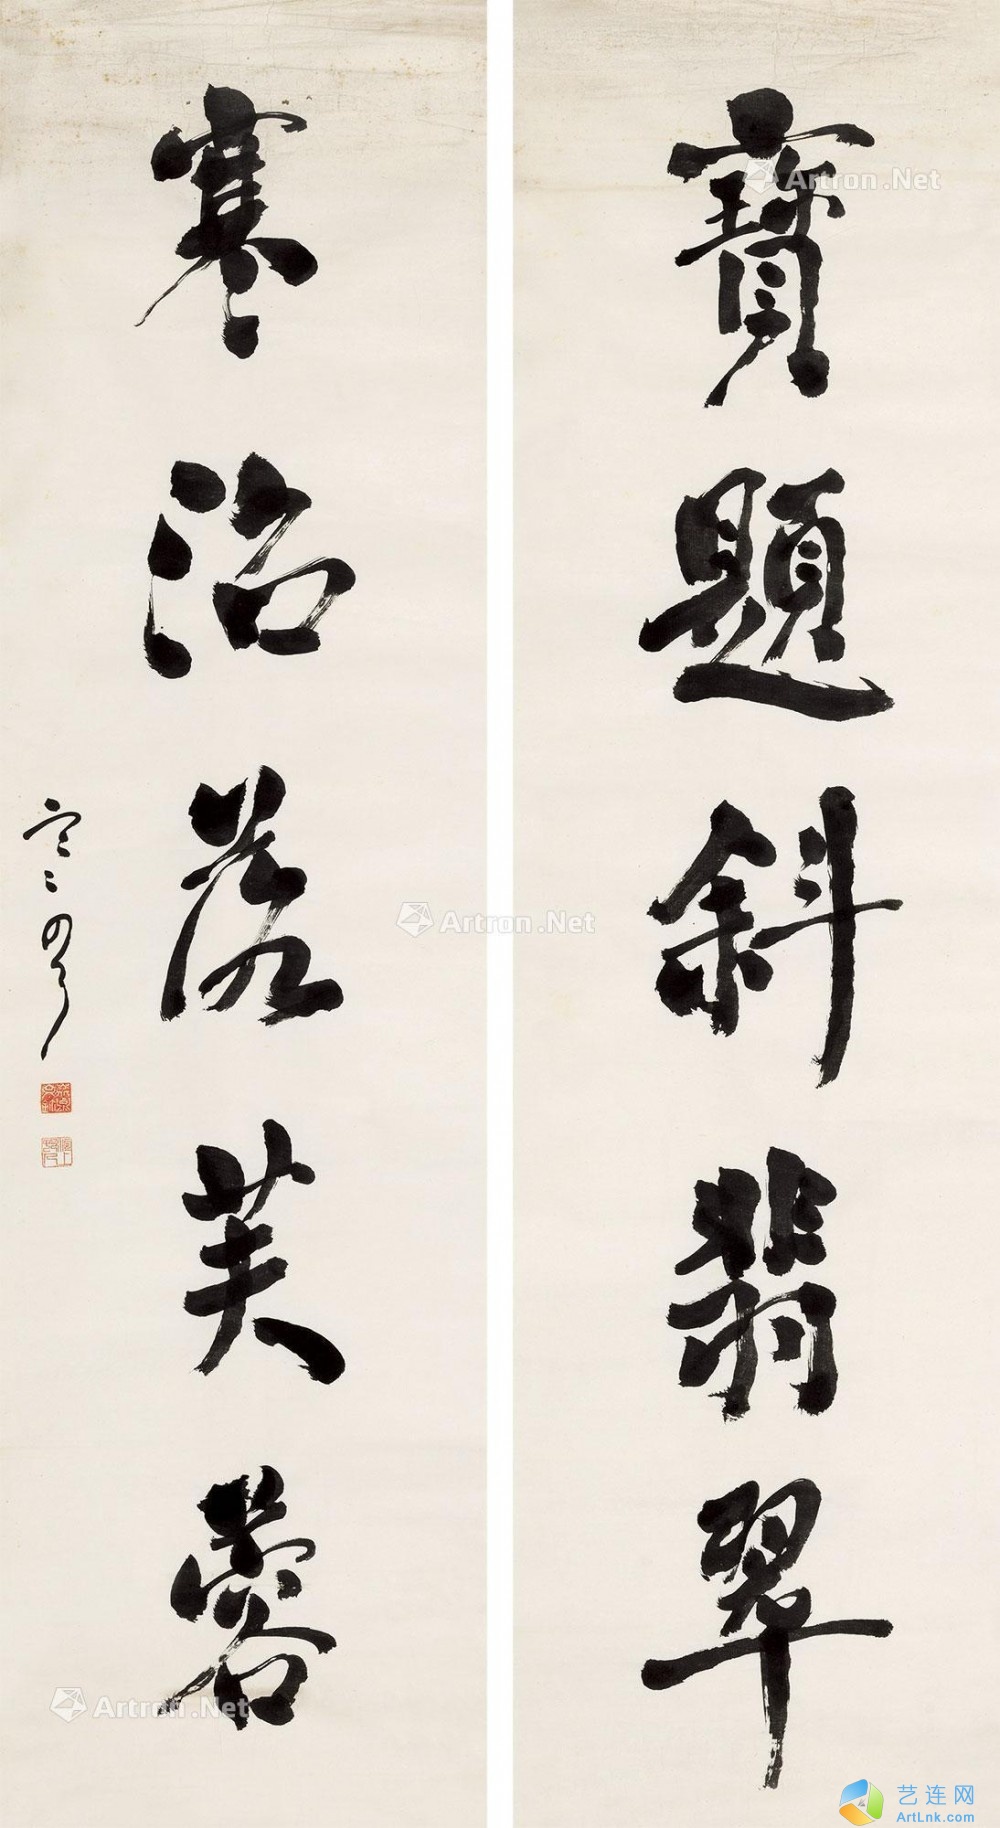 寶題斜翡翠
寒沼落芙蓉
Artron.Net
Artron.Net
Artron.Net
艺连网
ArtLnk.com